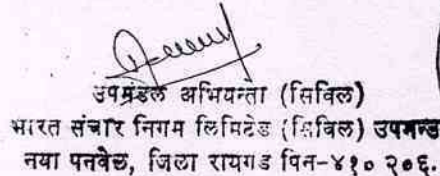 उपमंडल अभियन्ता (सिविल)
भारत संचार निगम लिमिटेड (सिविल) उपमन्ड
नया पनवेल, जिला रायगड पिन-४१० २०६.